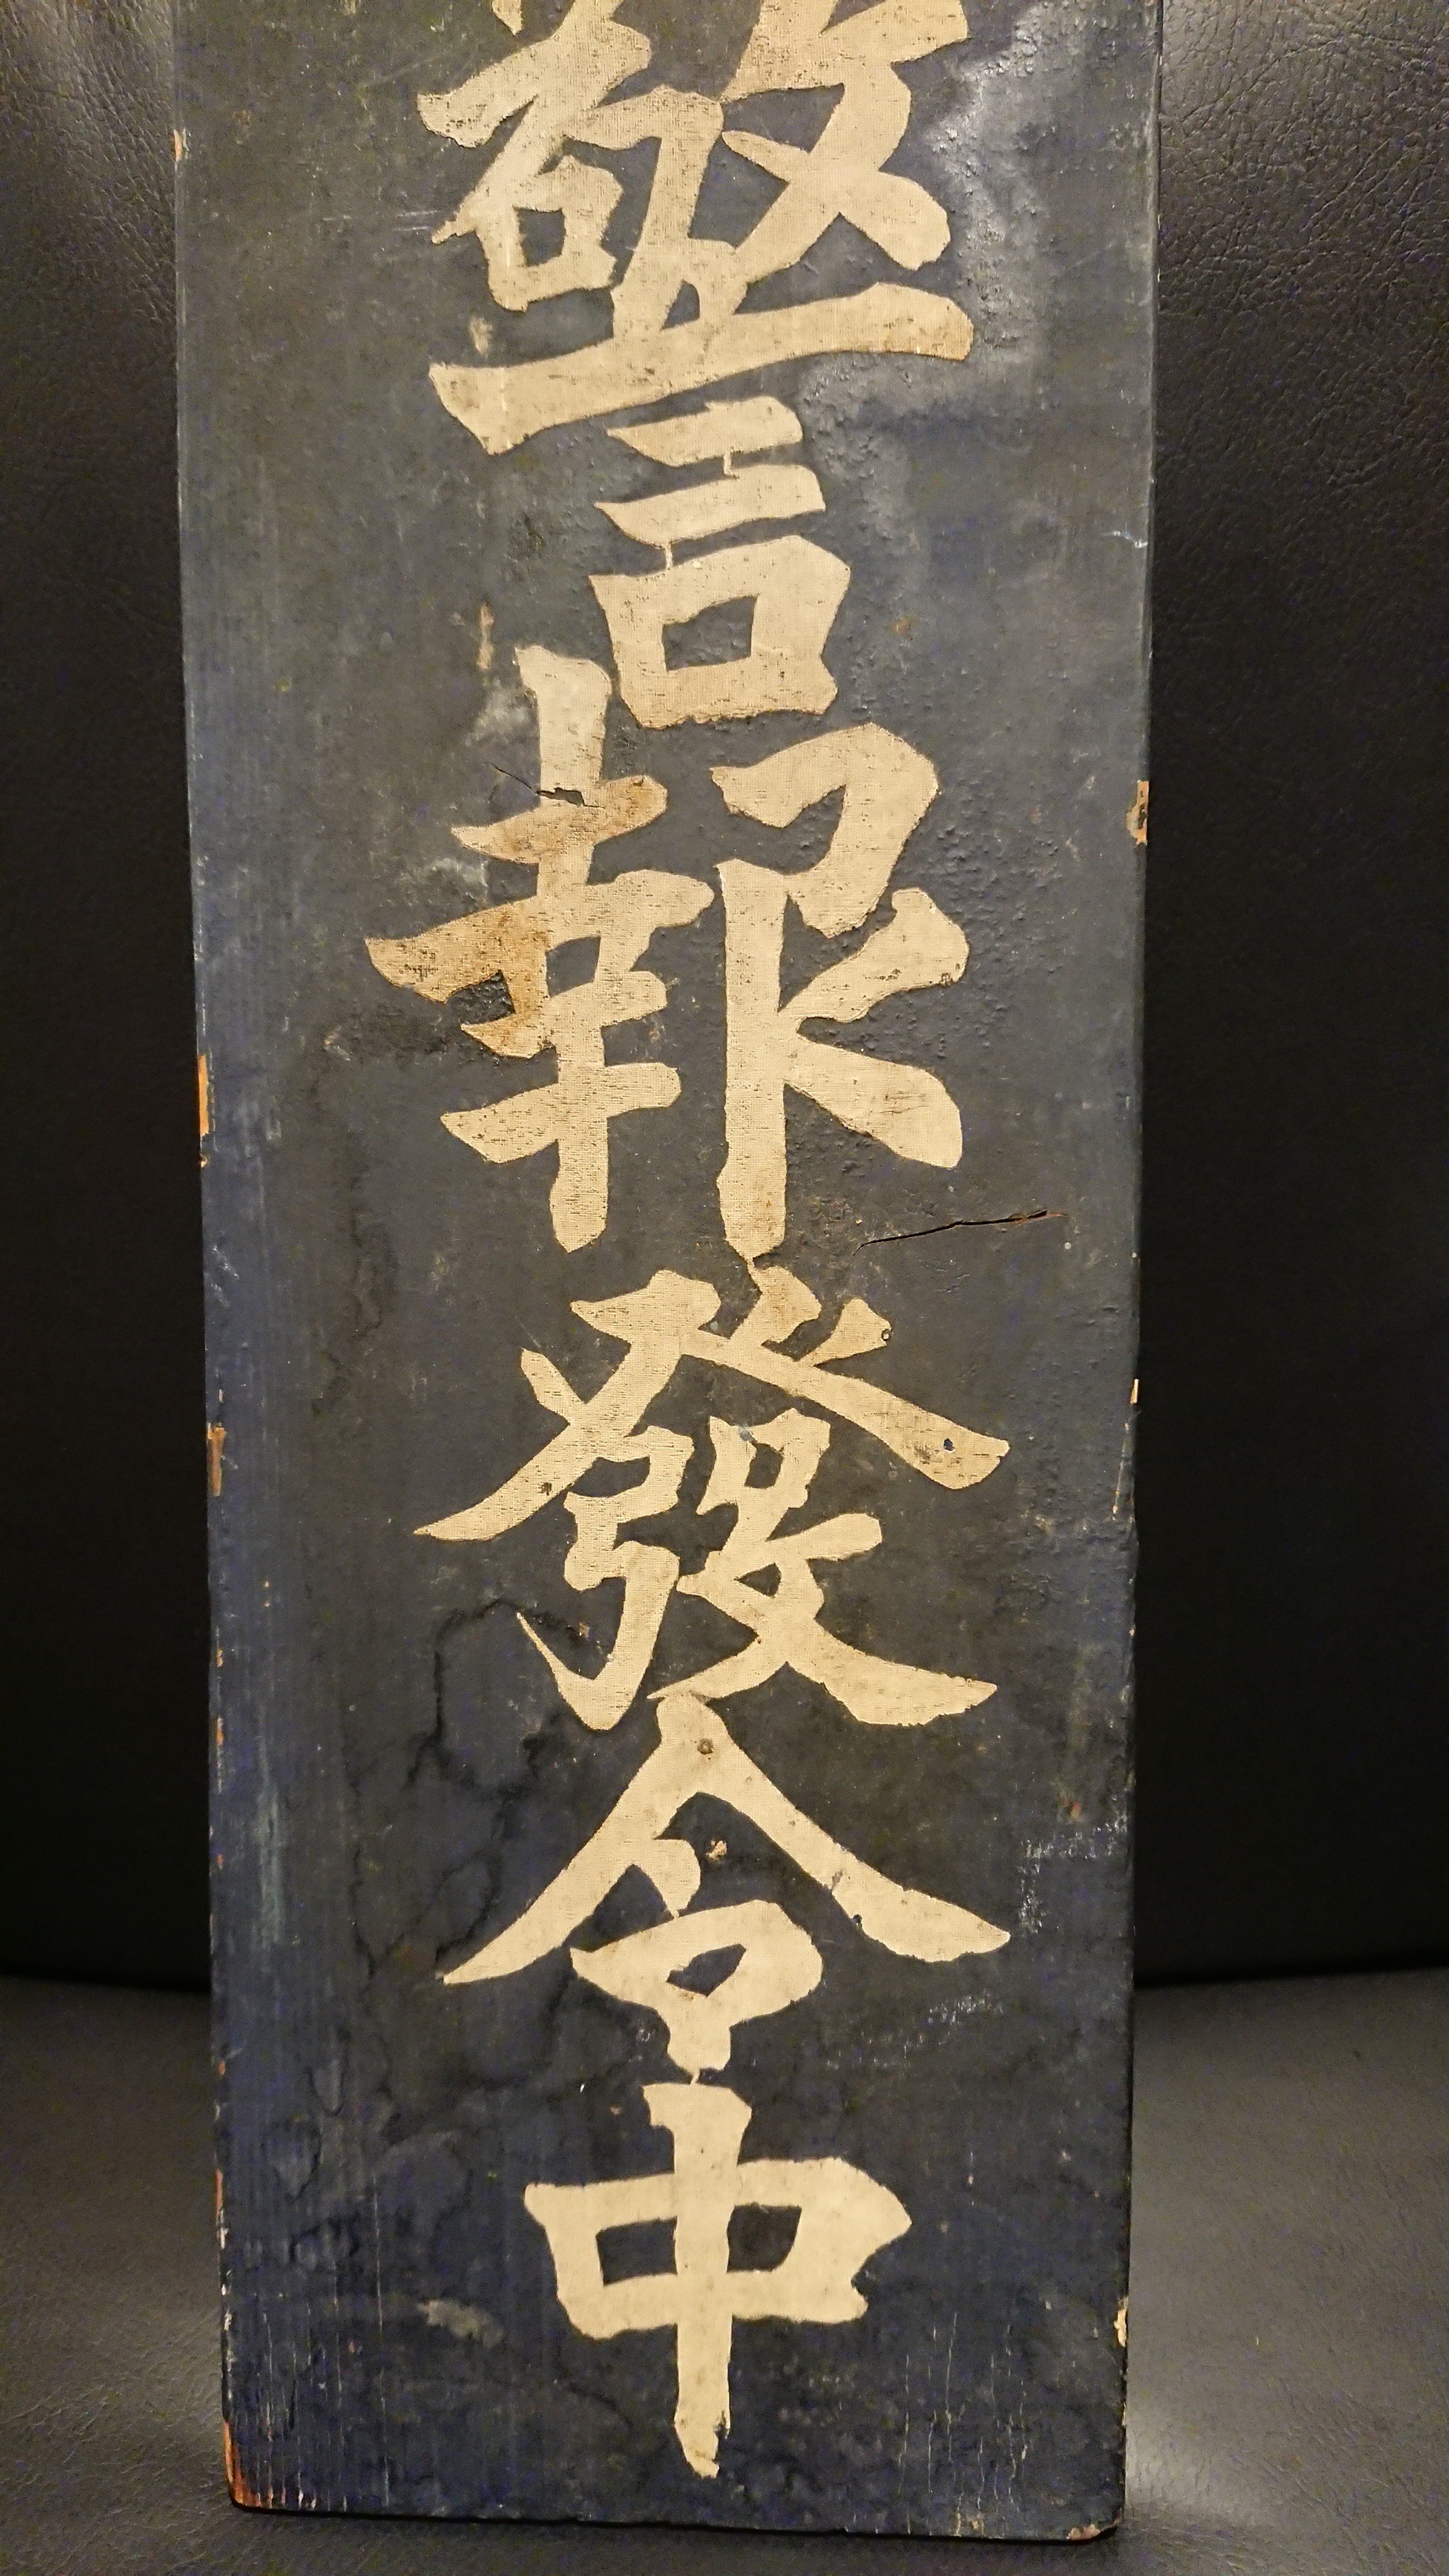 警報發令中